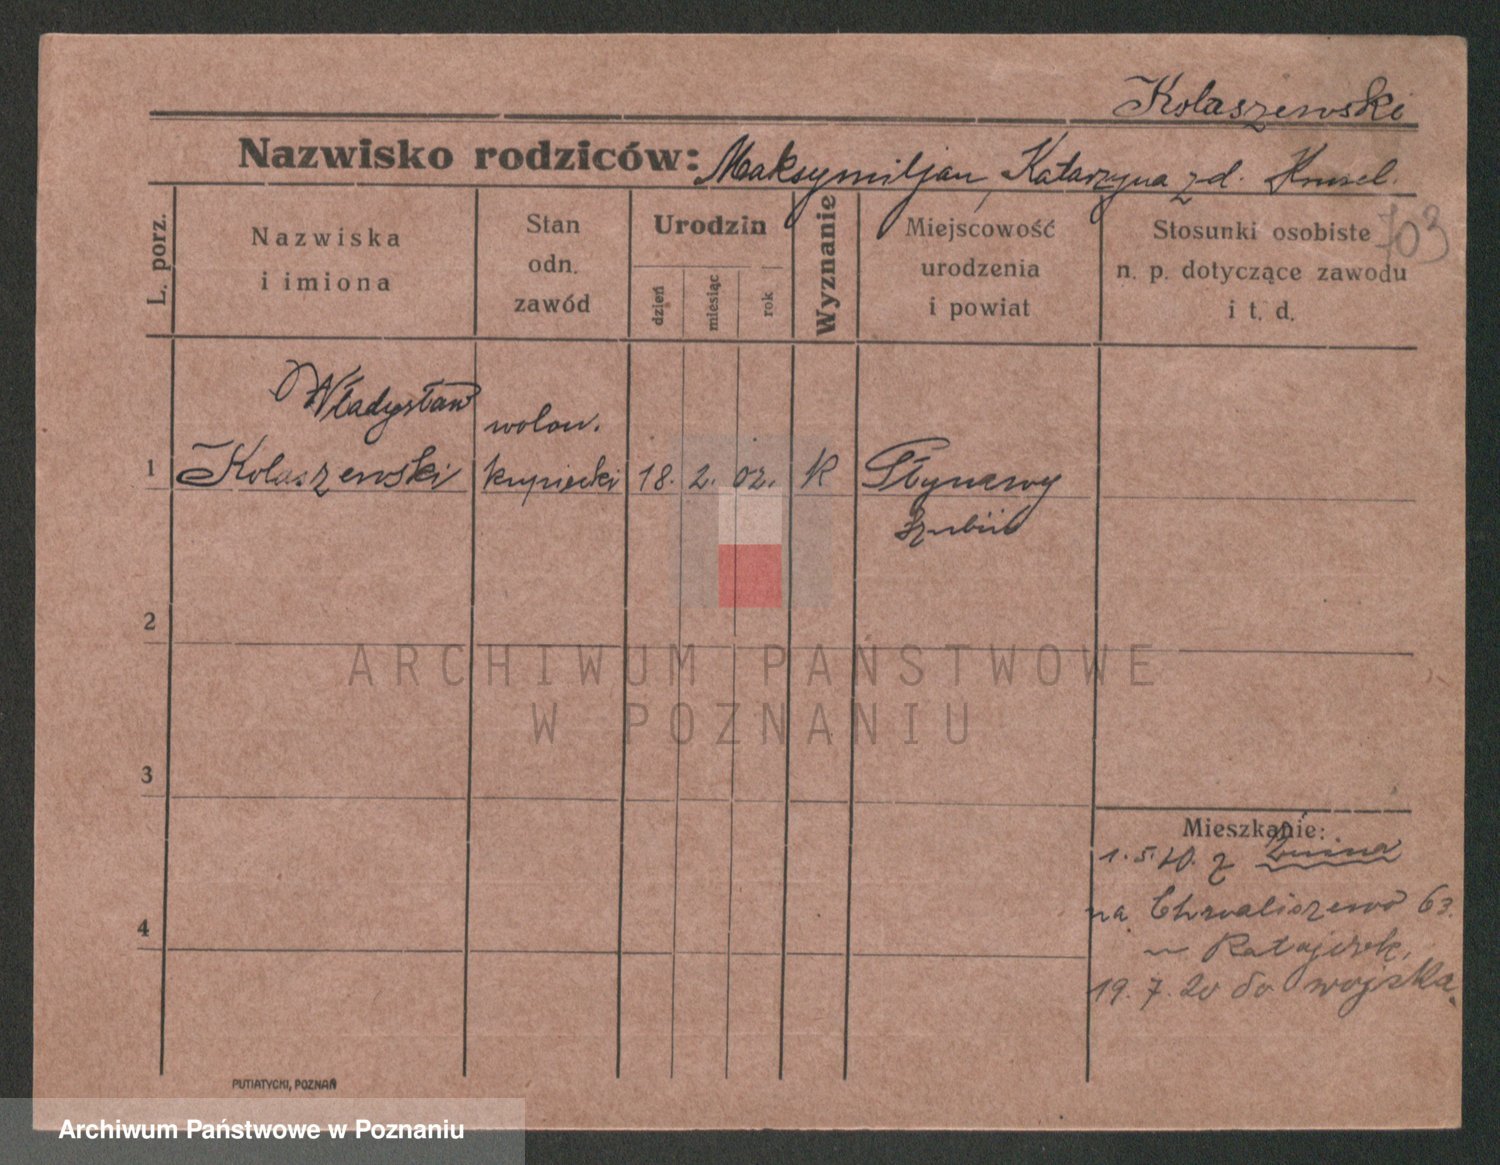 Kolaszewski
Nazwisko rodziców: Maksymiljan, Katarzyna zd.
703
L. porz.
Nazwiska
i imiona
Stan
odn.
zawód
Urodzin
dzień
miesiąc
rok
Wyznanie
Miejscowość
urodzenia
i powiat
Stosunki osobiste
n. p. dotyczące zawodu
i t. d.
Władysław
wolon.
1
Kolaszewski
kupiecki
18. 2. 02.
K
Szubin
2
ARCHIWUM PAŃSTWOWE
W POZNANIU
3
Mieszkanie:
1.5.20. z Żnina
na Chwaliszewo 63.
u Ratajczak,
4
19.7.20 do wojska
PUTIATYCKI, POZNAŃ
Archiwum Państwowe w Poznaniu